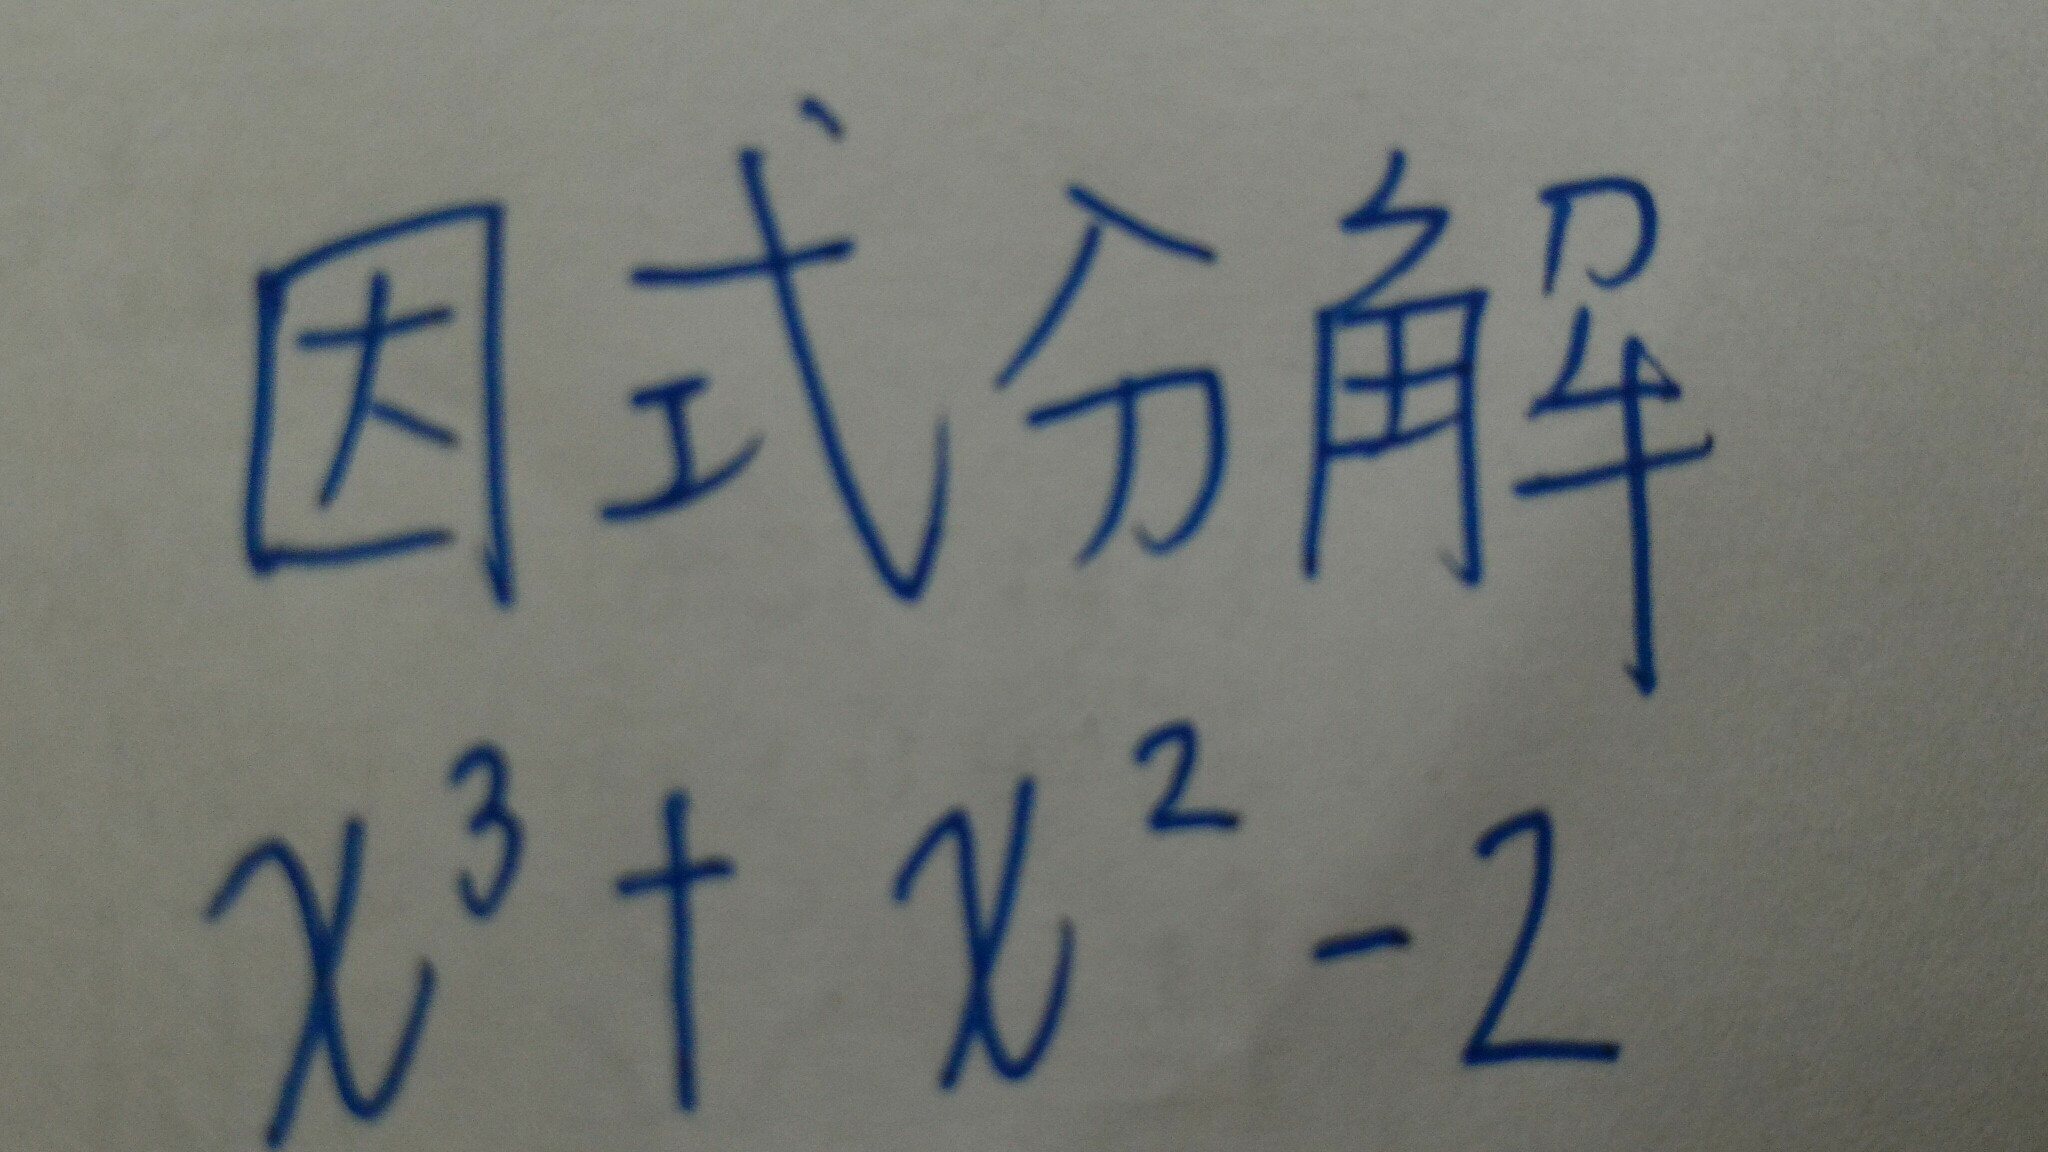 因式分解
x³+x²-2